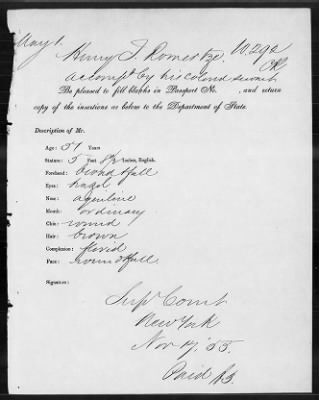 May 1.
Henry T. 10.292
accompd by his colored servant
Be pleased to fill blanks in Passport No. , and return
copy of the insertions as below to the Department of State.
Description of Mr.
Age: 51 Years
Stature: 5 Feet 8½ Inches, English.
Forehead: broad & full
Eyes: hazel
Nose: aquiline
Mouth: ordinary
Chin: round
Hair: brown
Complexion: florid
Face: round & full
Signature:
Supr Court
New York
Nov 17, '55.
Paid